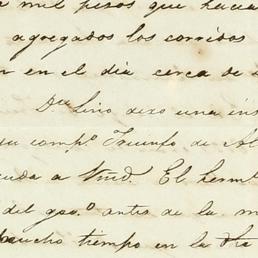 mil pesos que hacia
agregados los corridos
en el dia cerca de
Dn Lino dexo una ins
su comp.o Triunfo de Al
a Vmd. El herm
del gao.o antes de la m
mucho tiempo en la Ha